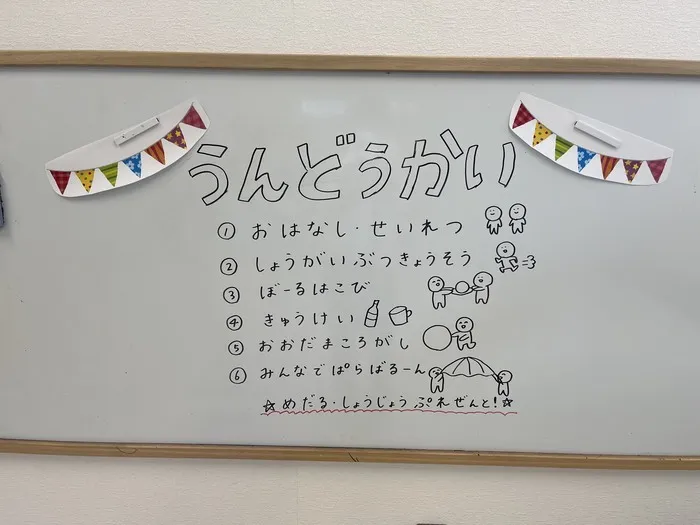 うんどうかい
① おはなし・せいれつ
② しょうがいぶつきょうそう
③ ぼーるはこび
④ きゅうけい
⑤ おおだまころがし
⑥ みんなでぱらばるーん
☆めだる・しょうじょう ぷれぜんと!☆